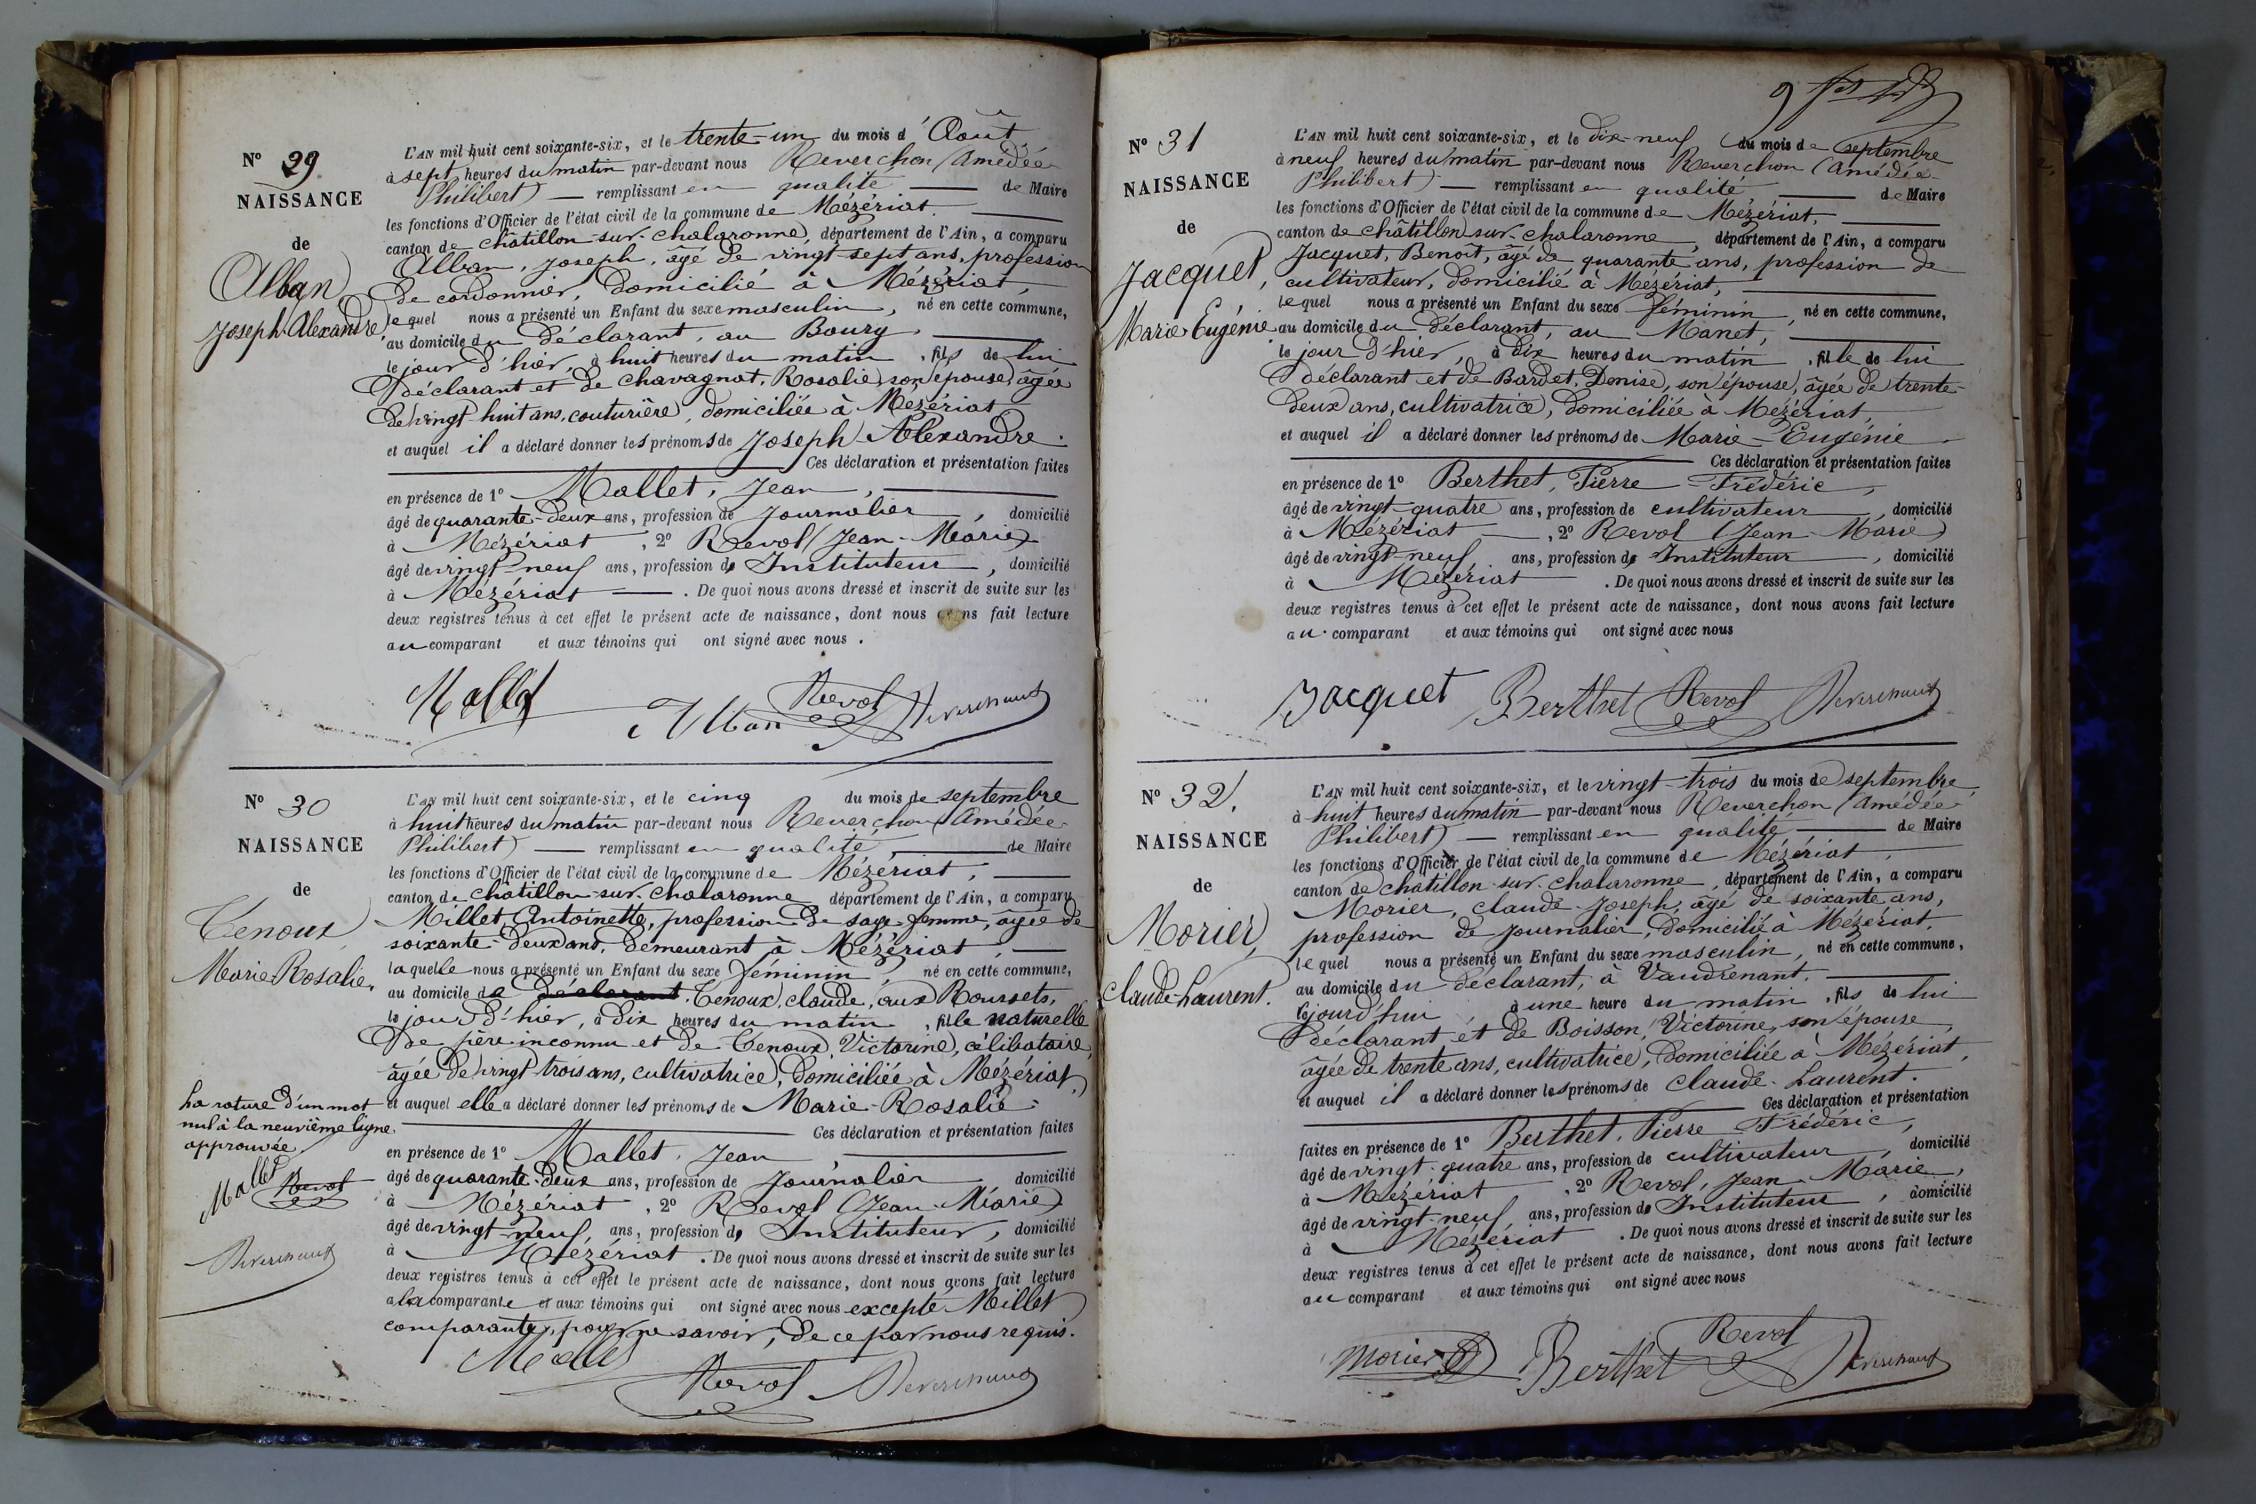 N° 29
NAISSANCE
de
Alban
Joseph-Alexandre
L'AN mil huit cent soixante-six, et le trente-un du mois d'Août
à sept heures du matin par-devant nous Reverchon (Amédée
Philibert) remplissant en qualité de Maire
les fonctions d'Officier de l'état civil de la commune de Mézériat.
canton de châtillon-sur-chalaronne, département de l'Ain, a comparu
Alban, Joseph, âgé de vingt-sept ans, profession
de cordonnier, domicilié à Mézériat,
lequel nous a présenté un Enfant du sexe masculin, né en cette commune,
au domicile du déclarant, au Bourg,
le jour d'hier, à huit heures du matin, fils de lui
déclarant et de chavagnat, Rosalie, son épouse, âgée
de vingt-huit ans, couturière, domiciliée à Mézériat
et auquel il a déclaré donner les prénoms de Joseph-Alexandre.
Ces déclaration et présentation faites
en présence de 1° Mallet, Jean,
âgé de quarante-deux ans, profession de Journalier, domicilié
à Mézériat, 2° Revol (Jean-Marie)
âgé de vingt-neuf ans, profession de Instituteur, domicilié
à Mézériat. De quoi nous avons dressé et inscrit de suite sur les
deux registres tenus à cet effet le présent acte de naissance, dont nous avons fait lecture
au comparant et aux témoins qui ont signé avec nous.
Mallet Alban Revol Reverchon
N° 30
NAISSANCE
de
Tenoux
Marie-Rosalie.
L'AN mil huit cent soixante-six, et le cinq du mois de septembre
à huit heures du matin par-devant nous Reverchon (Amédée
Philibert) remplissant en qualité de Maire
les fonctions d'Officier de l'état civil de la commune de Mézériat,
canton de châtillon-sur-chalaronne département de l'Ain, a comparu
Millet, Antoinette, profession de sage-femme, âgée de
soixante-deux ans, demeurant à Mézériat,
laquelle nous a présenté un Enfant du sexe féminin, né en cette commune,
au domicile de déclarant, Tenoux, claude, aux Roussets,
le jour d'hier, à dix heures du matin, fille naturelle
de père inconnu et de Tenoux, Victorine, célibataire,
âgée de vingt-trois ans, cultivatrice, domiciliée à Mézériat,
et auquel elle a déclaré donner les prénoms de Marie-Rosalie.
Ces déclaration et présentation faites
en présence de 1° Mallet, Jean
âgé de quarante-deux ans, profession de Journalier domicilié
à Mézériat, 2° Revol (Jean-Marie)
âgé de vingt-neuf ans, profession de Instituteur, domicilié
à Mézériat. De quoi nous avons dressé et inscrit de suite sur les
deux registres tenus à cet effet le présent acte de naissance, dont nous avons fait lecture
à la comparante et aux témoins qui ont signé avec nous excepté Millet
comparante, pour ne savoir, de ce par nous requis.
La rature d'un mot
nul à la neuvième ligne
approuvée.
Mallet
Revol
Reverchon
Mallet Revol Reverchon
N° 31
NAISSANCE
de
Jacquet,
Marie Eugénie
L'AN mil huit cent soixante-six, et le dix-neuf du mois de septembre
à neuf heures du matin par-devant nous Reverchon (Amédée
Philibert) remplissant en qualité de Maire
les fonctions d'Officier de l'état civil de la commune de Mézériat,
canton de châtillon-sur-chalaronne, département de l'Ain, a comparu
Jacquet, Benoît, âgé de quarante ans, profession de
cultivateur, domicilié à Mézériat,
lequel nous a présenté un Enfant du sexe féminin, né en cette commune,
au domicile du déclarant, au Manet,
le jour d'hier, à dix heures du matin, fille de lui
déclarant et de Bardet, Denise, son épouse, âgée de trente-
deux ans, cultivatrice, domiciliée à Mézériat,
et auquel il a déclaré donner les prénoms de Marie-Eugénie.
Ces déclaration et présentation faites
en présence de 1° Berthet, Pierre Frédéric,
âgé de vingt-quatre ans, profession de cultivateur, domicilié
à Mézériat, 2° Revol (Jean-Marie)
âgé de vingt-neuf, ans, profession de Instituteur, domicilié
à Mézériat. De quoi nous avons dressé et inscrit de suite sur les
deux registres tenus à cet effet le présent acte de naissance, dont nous avons fait lecture
au comparant et aux témoins qui ont signé avec nous
Jacquet Berthet Revol Reverchon
N° 32.
NAISSANCE
de
Morier,
Claude-Laurent.
L'AN mil huit cent soixante-six, et le vingt-trois du mois de septembre,
à huit heures du matin par-devant nous Reverchon (Amédée
Philibert) remplissant en qualité de Maire
les fonctions d'Officier de l'état civil de la commune de Mézériat,
canton de châtillon-sur-chalaronne, département de l'Ain, a comparu
Morier, claude-Joseph, âgé de soixante ans,
profession de journalier, domicilié à Mézériat,
lequel nous a présenté un Enfant du sexe masculin, né en cette commune,
au domicile du déclarant, à Vaudrenant,
le jourd'hui à une heure du matin, fils de lui
déclarant et de Boisson, Victorine, son épouse,
âgée de trente ans, cultivatrice, domiciliée à Mézériat,
et auquel il a déclaré donner les prénoms de claude-Laurent.
Ces déclaration et présentation
faites en présence de 1° Berthet, Pierre Frédéric,
âgé de vingt-quatre ans, profession de cultivateur, domicilié
à Mézériat, 2° Revol, Jean-Marie,
âgé de vingt-neuf ans, profession de Instituteur, domicilié
à Mézériat. De quoi nous avons dressé et inscrit de suite sur les
deux registres tenus à cet effet le présent acte de naissance, dont nous avons fait lecture
au comparant et aux témoins qui ont signé avec nous
Morier Berthet Revol Reverchon